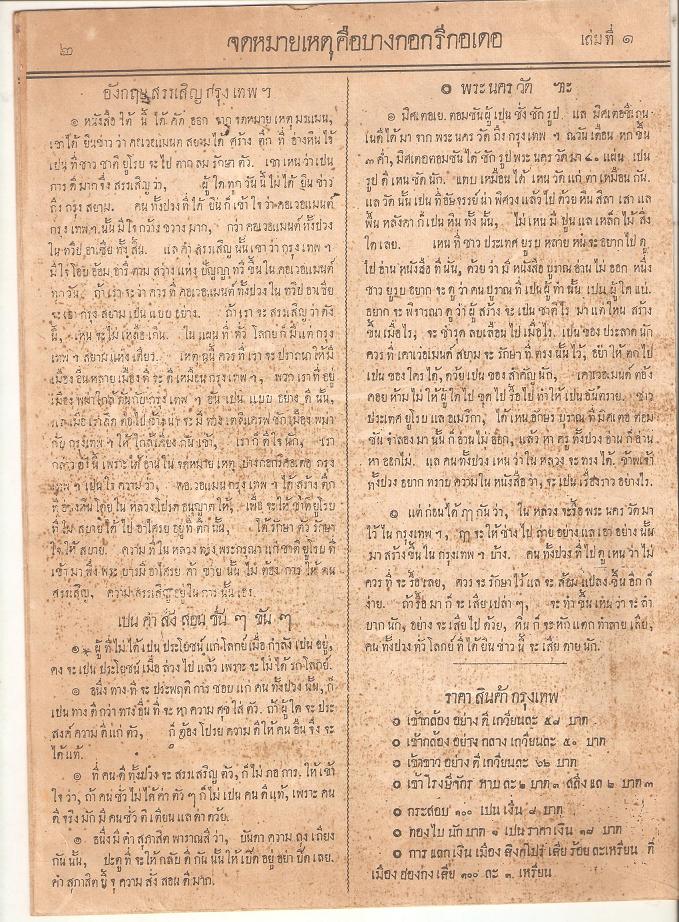 ๒
จดหมายเหตุคือบางกอกรีกอเดอ
เล่มที่ ๑
อังกฤษสรรเสิญกรุงเทพฯ
๑ หนังสือ ใต้ นี้ ได้ คัด ออก จาก จดหมาย เหตุ มรแมน,
เขาได้ ยินข่าว ว่า คอเวอแมนต์ สยามได้ สร้าง ตึก ที่ อ่างหินไว้
เปน ที่ ชาว ชาติ ยูโรบ จะ ไป ตาก ลม รักษา ตัว. เขา เหน ว่า เปน
การ ดี มาก จึ่ง สรรเสิญ ว่า, ผู้ ใด ทุก วัน นี้ ไม่ ได้ ยิน ข่าว
ถึง กรุง สยาม. คน ทั้งปวง ที่ ได้ ยิน ก็ เข้า ใจ ว่า คอเวอแมนต์
กรุง เทพฯ, นั้น มี ใจ กว้าง ขวาง มาก, กว่า คอเวอแมนต์ ทั้งปวง
ใน ทวีป อาเซีย ทั้ง สิ้น. แล คำ สรรเสิญ นั้น เขา ว่า กรุง เทพ ฯ
มี ใจ โอบ อ้อม อารี ความ สว่าง แห่ง ปัญญา ทวี ขึ้น ใน คอเวอแมนต์
ทุก วัน. ถ้า เรา จะ ว่า ควร ที่ คอเวอแมนต์ ทั้งปวง ใน ทวีป อาเซีย
จะ เอา กรุง สยาม เปน แบบ อย่าง. ถ้า เรา จะ สรรเสิญ ว่า ดัง
นี้, เหน จะ ไม่ เหลือ เกิน. ใน แผน ที่ ทั่ว โลกย์ ก็ มี แต่ กรุง
เทพ ฯ สยาม แห่ง เดียว. เหตุ ฉนั้น ควร ที่ เรา จะ ปราถนา ให้ มี
เมือง อื่น หลาย เมือง ที่ จะ ดี เหมือน กรุง เทพ ฯ, พวก เรา ที่ อยู่
เมือง พม่า ใกล้ กัน กับ กรุง เทพ ฯ อัน เปน แบบ อย่าง ดี นั้น,
กับ กรุง เทพ ฯ ให้ ใกล้ เคียง กัน เข้า, เรา ก็ ดี ใจ นัก, เรา
กล่าว ดัง นี้ เพราะ ได้ อ่าน ใน จดหมาย เหตุ บางกอกรีคอเดอ กรุง
เทพ ฯ เปน ใจ ความ ว่า, คอ.เวอแมน กรุง เทพ ฯ ได้ สร้าง ตึก
ที่ อ่างหิน โดย ใน หลวง โปรด อนุญาต ให้, เพื่อ จะ ให้ ชาติ ยูโรบ
ที่ ไม่ สบาย ได้ ไป อาไศรย อยู่ ที่ ตึก นั้น, ได้ รักษา ตัว รักษา
ใจ ให้ สบาย. ความ ที่ ใน หลวง ทรง พระกรุณา แก่ ชาติ ยูโรบ ที่
เข้า มา พึ่ง พระ บารมี อาไศรย ค้า ขาย นั้น ไม่ ต้อง การ ให้ คน
สรรเสิญ, ความ สรรเสิญ อยู่ ใน การ นั้น เอง.
เปน คำ สั่ง สอน ชั้น ๆ ขัน ๆ
๑ ผู้ ที่ ไม่ ได้ เปน ประโยชน์ แก่ โลกย์ เมื่อ กำลัง เปน อยู่,
คง จะ เปน ประโยชน์ เมื่อ ล่วง ไป แล้ว เพราะ จะ ไม่ ได้ รก โลกย์.
๑ อนึ่ง ทาง ที่ จะ ประพฤติ การ ชอบ แก่ คน ทั้งปวง นั้น, ก็
เปน ทาง ดี กว่า ทาง อื่น ที่ จะ หา ความ ศุข ใส่ ตัว. ถ้า ผู้ ใด จะ ประ
สงค์ ความ ดี แก่ ตัว, ก็ ต้อง โปรย ความ ดี ให้ คน อื่น จึ่ง จะ
ได้ แท้.
๑ ที่ คน ดี ทั้งปวง จะ สรรเสริญ ตัว, ก็ ไม่ ภอ การ, ให้ เข้า
ใจ ว่า, ถ้า คน ชั่ว ไม่ ได้ ด่า ตัว ๆ ก็ ไม่ เปน คน ดี แท้, เพราะ คน
ดี จริง มัก มี คน ชั่ว ติ เตียน แล ด่า ด้วย.
๑ อนึ่ง มี คำ สุภาสิต พาราณสี ว่า, บันดา ความ ถุ้ง เถียง
กัน นั้น, ปะตู ที่ จะ ให้ กลับ ดี กัน นั้น ให้ เปิด อยู่ อย่า ปิด เลย.
คำ สุภาสิต นี้ จุ ความ สั่ง สอน ดี มาก.
๐ พระ นคร วัด
๑ มิศเตอเย. ตอมซัน ผู้ เปน ช่าง ชัก รูป แล มิศเตอ
ได้ มา จาก พระ นคร วัด ถึง กรุง เทพ ฯ ณวัน เดือน หก ขึ้น
๓ ค่ำ, มิศเตอตอมซัน ได้ ชัก รูป พระ นคร วัด มา ๔๐ แผ่น เปน
รูป ดี เหน ชัด นัก. แทบ เหมือน ได้ เหน วัด แก่ ตา เหมือน กัน.
แล วัด นั้น เปน ที่ อัษจรรย์ น่า พิศวง แล้ว ไป ด้วย หิน สิลา เสา แล
พื้น หลังคา ก็ เปน หิน ทั้ง นั้น, ไม่ เหน มี ปูน แล เหล็ก ไม้ สิ่ง
ใด เลย. เหน ที่ ชาว ประเทศ ยูรบ หลาย หน จะ อยาก ไป ดู
ไป อ่าน หนังสือ ที่ นั่น, ด้วย ว่า มี หนังสือ บูราณ อ่าน ไม่ ออก หนึ่ง
ชาว ยูรบ อยาก จะ ดู ว่า คน บูราณ ที่ เปน ผู้ ทำ นั้น เปน ผู้ ใด แน่.
อยาก จะ พิจารณา ดู ว่า ผู้ สร้าง จะ เปน ชาติ ไร มา แต่ ไหน สร้าง
ขึ้น เมื่อ ไร, จะ ชำรุด ลบเลือน ไป เมื่อ ไร. เปน ของ ประลาด นัก
ควร ที่ เคาเวอเมนต์ สยาม จะ รักษา ที่ ตรง นั้น ไว้, อย่า ให้ ตก ไป
เปน ของ ใคร ได้, ด้วย เปน ของ สำคัญ นัก, เคาเวอเมนต์ ต้อง
คอย ห้าม ไม่ ให้ ผู้ ใด ไป ขุด ไป รื้อ ไป ทำ ให้ เปน อันตราย. ชาว
ประเทศ ยูโรบ แล อเมริกา, ได้ เหน อักษร บูราณ ที่ มิศเตอ ตอม
ซัน จำลอง มา นั้น ก็ อ่าน ไม่ ออก, แล้ว หา ครู ทั้งปวง อ่าน ก็ อ่าน
หา ออก ไม่. แล คน ทั้งปวง เหน ว่า ใน หลวง จะ ทรง ได้. ข้าพเจ้า
ทั้งปวง อยาก ทราบ ความ ใน หนังสือ ว่า, จะ เปน เรื่องราว อย่างไร.
๑ แต่ ก่อน ได้ ฦๅ กัน ว่า, ใน หลวง จะ รื้อ พระ นคร วัด มา
ไว้ ใน กรุง เทพ ฯ, ฦๅ จะ ให้ ช่าง ไป ลาย อย่าง แล เอา อย่าง นั้น
มา สร้าง ขึ้น ใน กรุง เทพ ฯ บ้าง. คน ทั้งปวง ที่ ไป ดู เหน ว่า ไม่
ควร ที่ จะ รื้อ เลย, ควร จะ รักษา ไว้ แล จะ ส้อม แปลง ขึ้น อีก ก็
ง่าย. ถ้า รื้อ มา ก็ จะ เสีย เปล่า ๆ, จะ ทำ ขึ้น เหน ว่า จะ ลำ
บาก นัก, อย่าง จะ เสีย ไป ด้วย, หิน ก็ จะ หัก แตก ทำลาย เสีย,
คน ทั้งปวง ทั่ว โลกย์ ที่ ได้ ยิน ข่าว นี้ จะ เสีย ดาย นัก.
ราคา สินค้า กรุงเทพ
๐ เข้ากล้อง อย่าง ดี เกวียนละ ๕๘ บาท
๐ เข้ากล้อง อย่าง กลาง เกวียนละ ๕๐ บาท
๐ เข้าขาว อย่าง ดี เกวียนละ ๖๒ บาท
๐ เข้า โรงษีจักร หาบ ละ ๒ บาท ๓ สลึง แล ๒ บาท ๓
๐ กระสอบ ๑๐๐ เปน เงิน ๘ บาท
๐ ทองใบ นัก บาท ๑ เปน ราคา เงิน ๑๘ บาท
๐ การ แลก เงิน เมือง สิงคโปร์ เสีย ร้อย ละเหรียน ที่
เมือง ฮ่องกง เสีย ๑๐๐ ละ ๓. เหรียน.